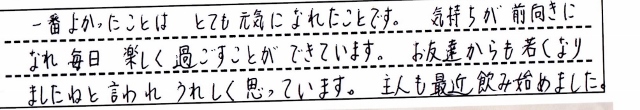 一番よかったことは とても元気になれたことです。 気持ちが前向きに
なれ毎日 楽しく過ごすことができています。 お友達からも若くなり
ましたねと言われ うれしく思っています。 主人も最近飲み始めました。